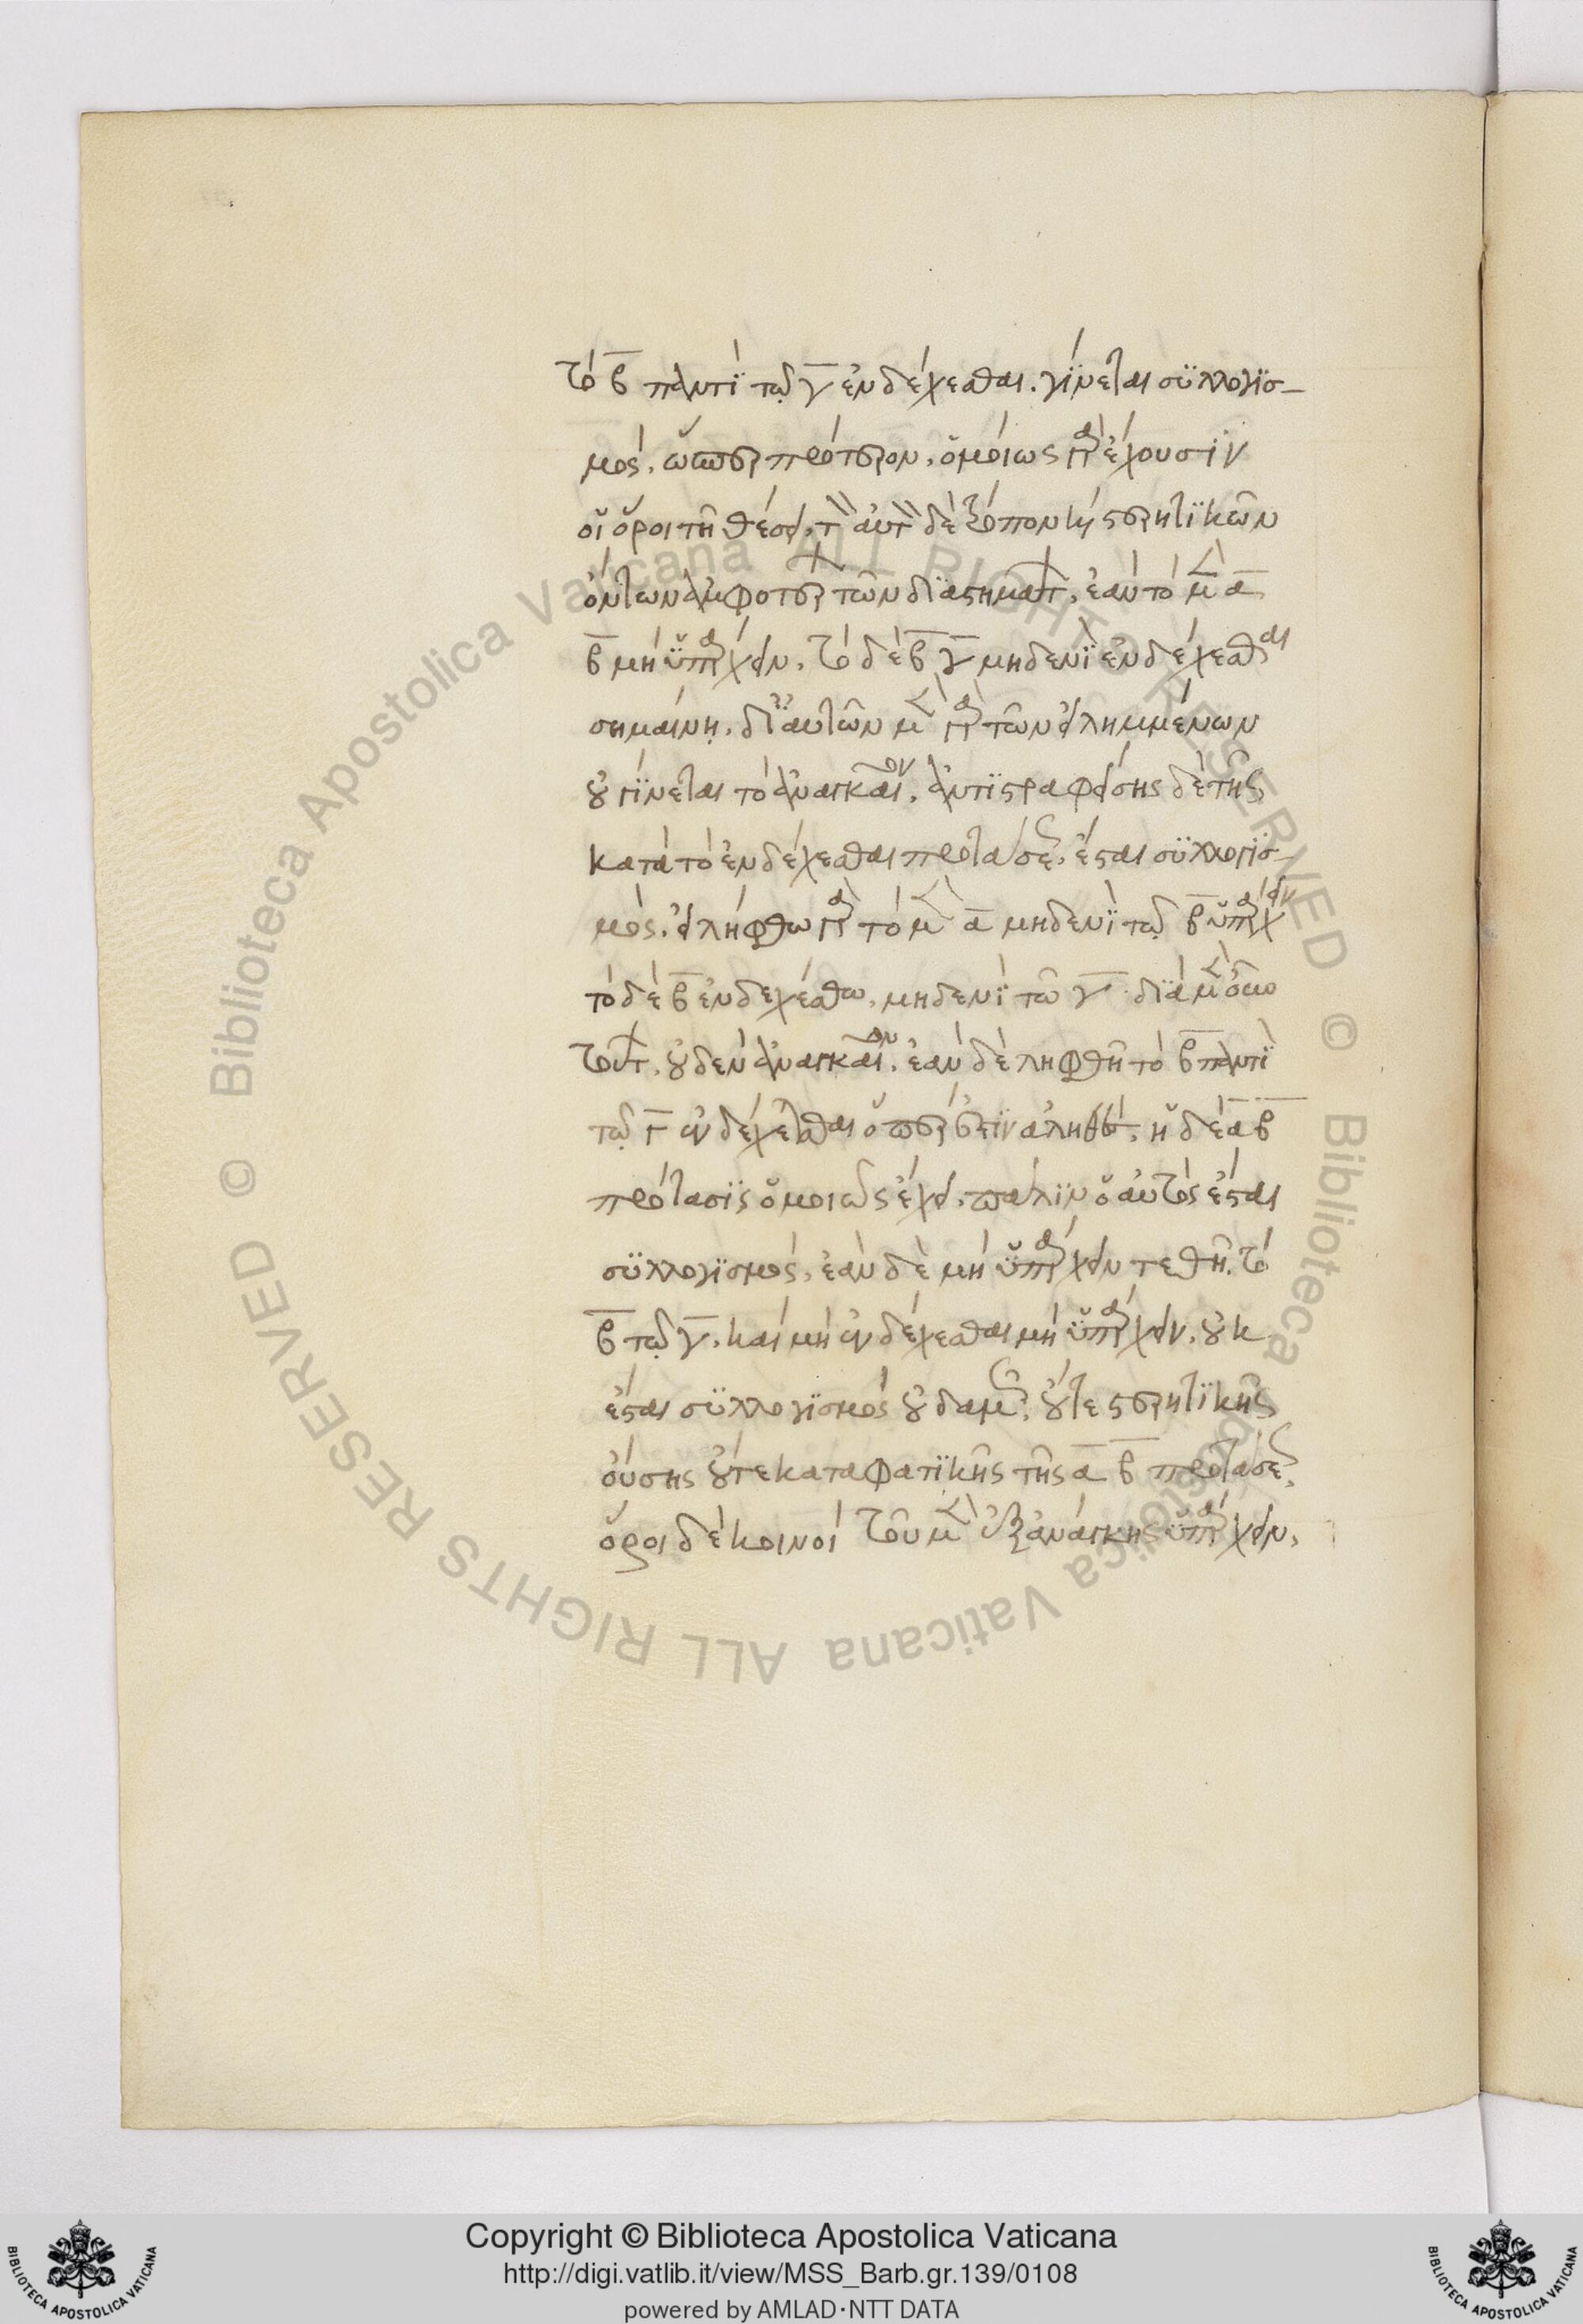 τὸ β̅ παντὶ τῷ γ̅ ἐνδέχεσθαι. γίνεται συλλογισ-
μός, ὥσπερ πρότερον. ὁμοίως γὰρ ἔχουσιν
οἱ ὅροι τῇ θέσει. τὸν αὐτὸν δὲ τρόπον κἠ στερητικῶν
ὄντων ἀμφοτέρων τῶν διαστημάτων. ἐὰν τὸ μὲν α̅
β̅ μὴ ὑπάρχειν. τὸ δὲ β̅ γ̅ μηδενὶ ἐνδέχεσθαι
σημαίνῃ. δι' αὐτῶν μὲν γὰρ τῶν εἰλημμένων
οὐ γίνεται τὸ ἀναγκαῖον. ἀντιστραφείσης δὲ τῆς
κατὰ τὸ ἐνδέχεσθαι προτάσεως, ἔσται συλλογισ-
μός. εἰλήφθω γὰρ τὸ μὲν α̅ μηδενὶ τῷ β̅ ὑπάρχειν
τὸ δὲ β̅ ἐνδεχέσθω. μηδενὶ τῶ γ̅. διὰ μὲν οὖν
τούτων. οὐδὲν ἀναγκαῖον. ἐὰν δὲ ληφθῇ τὸ β̅ παντὶ
τῷ γ̅ ἐνδέχεσθαι ὅπερ ἐστὶν ἀληθές. ἡ δὲ α̅ β̅
πρότασις ὁμοίως ἔχει. πάλιν ὁ αὐτὸς ἔσται
συλλογισμός. ἐὰν δὲ μὴ ὑπάρχειν τεθῇ. τὸ
β̅ τῷ γ̅. καὶ μὴ ἐνδέχεσθαι μὴ ὑπάρχειν. οὐκ
ἔσται συλλογισμὸς οὐδαμῶς. οὔτε στερητικῆς
οὔσης οὔτε καταφατικῆς τῆς α̅ β̅ προτάσεως.
ὅροι δὲ κοινοὶ τοῦ μὲν ἐξ ἀνάγκης ὑπάρχειν.
Copyright © Biblioteca Apostolica Vaticana
http://digi.vatlib.it/view/MSS_Barb.gr.139/0108
powered by AMLAD·NTT DATA
BIBLIOTECA APOSTOLICA VATICANA
BIBLIOTECA APOSTOLICA VATICANA
© Biblioteca Apostolica Vaticana ALL RIGHTS RESERVED © Biblioteca Apostolica Vaticana ALL RIGHTS RESERVED